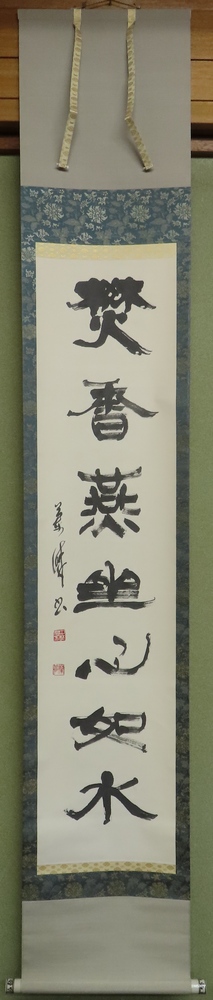 焚香燕坐心如水
書